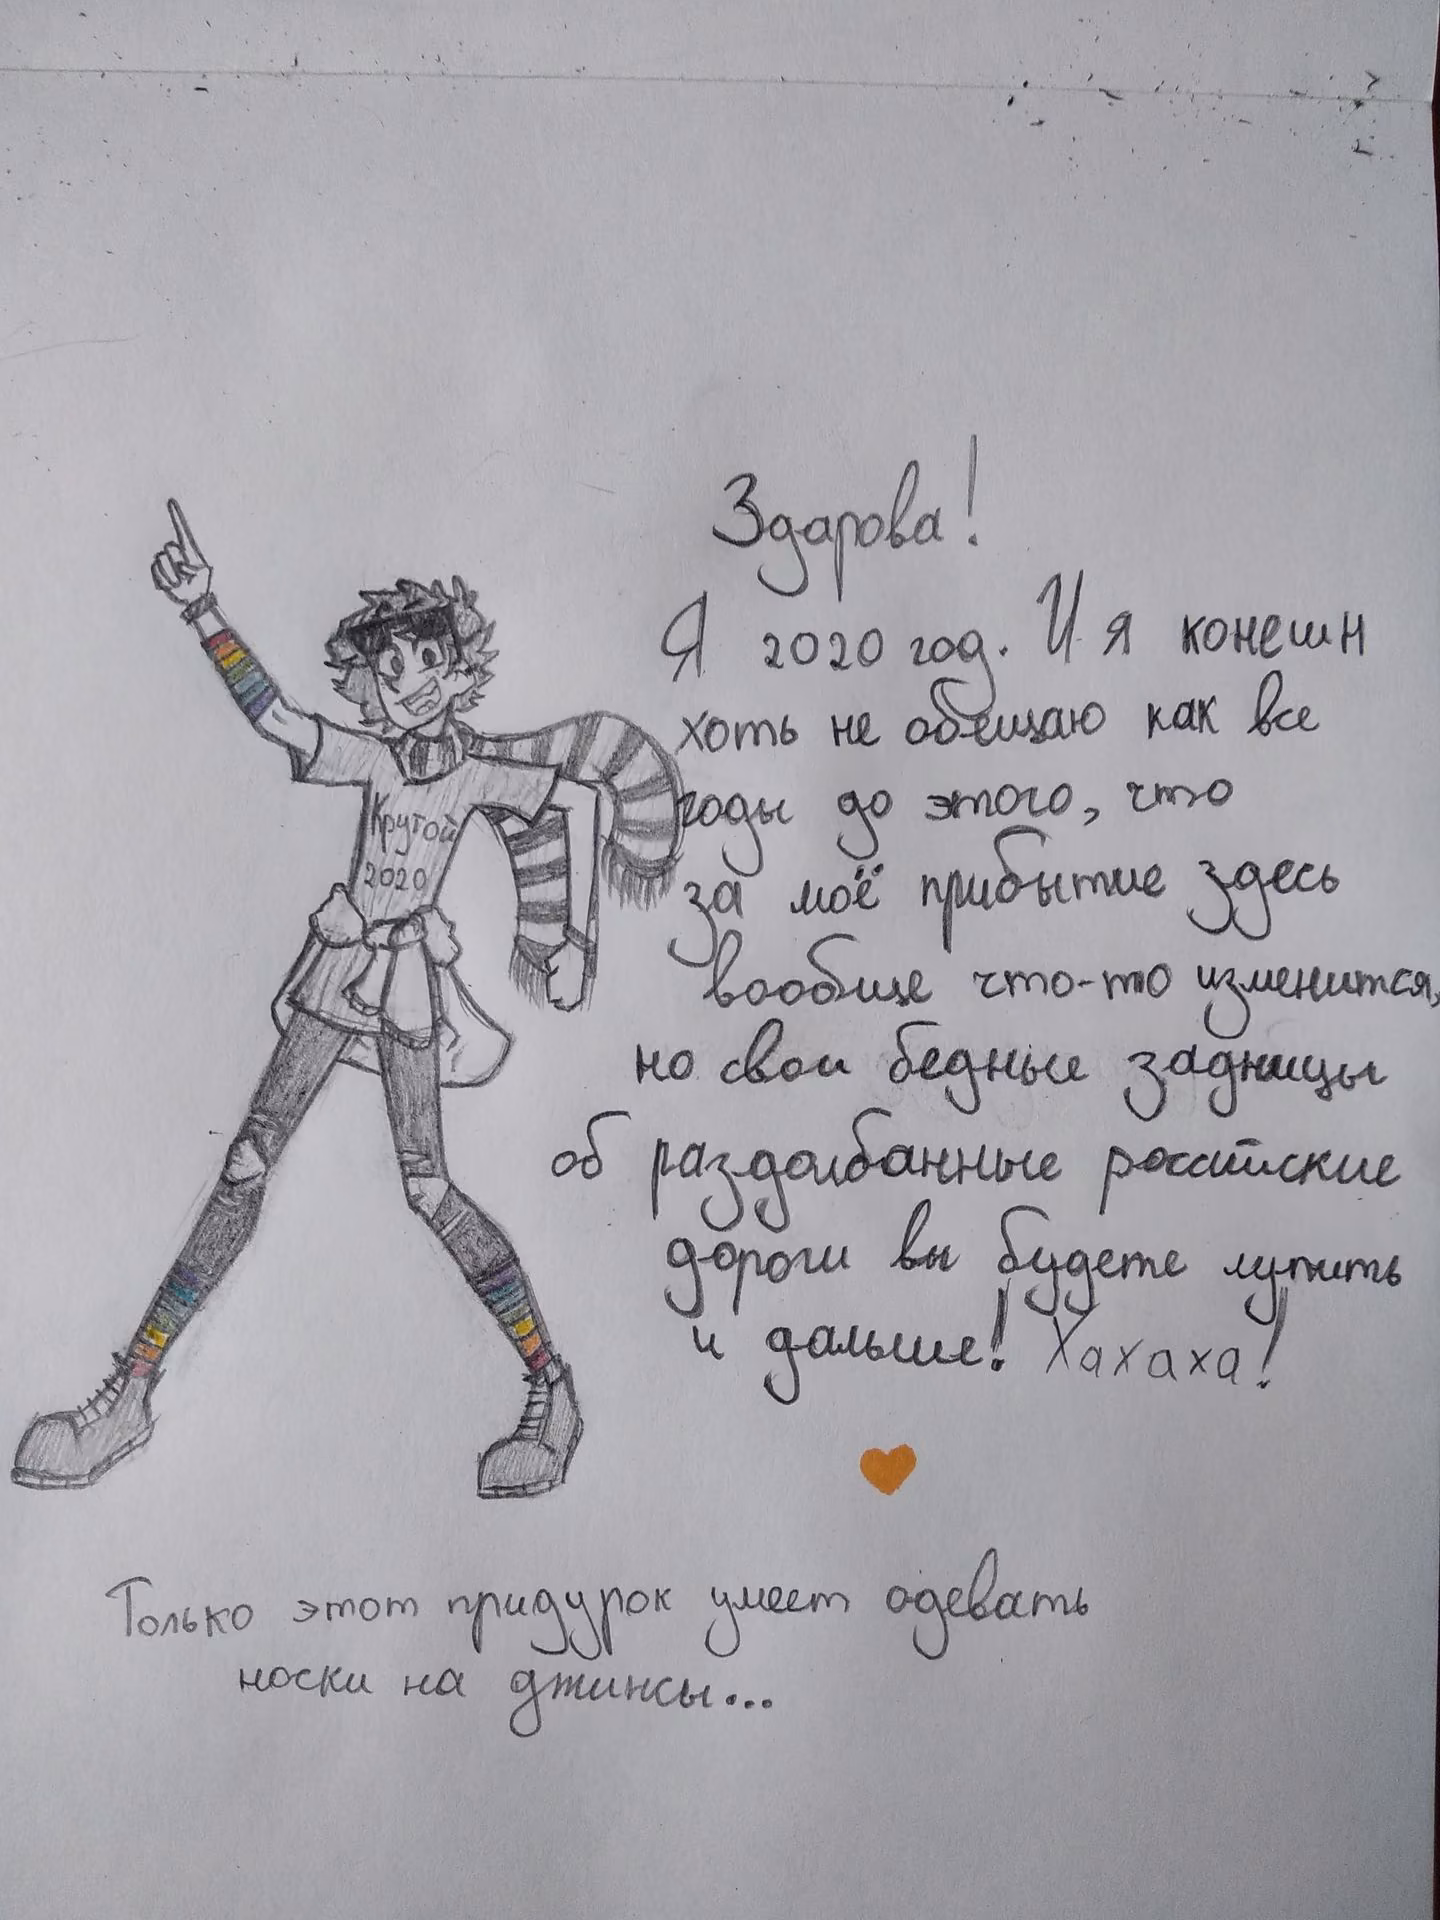 Здарова!
Я 2020 год. И я конешн
хоть не обещаю как все
годы до этого, что
за моё прибытие здесь
вообще что-то изменится,
но свои бедные задницы
об раздолбанные российские
дороги вы будете лупить
и дальше! Хахаха!
Крутой
2020
Только этот придурок умеет одевать
носки на джинсы...